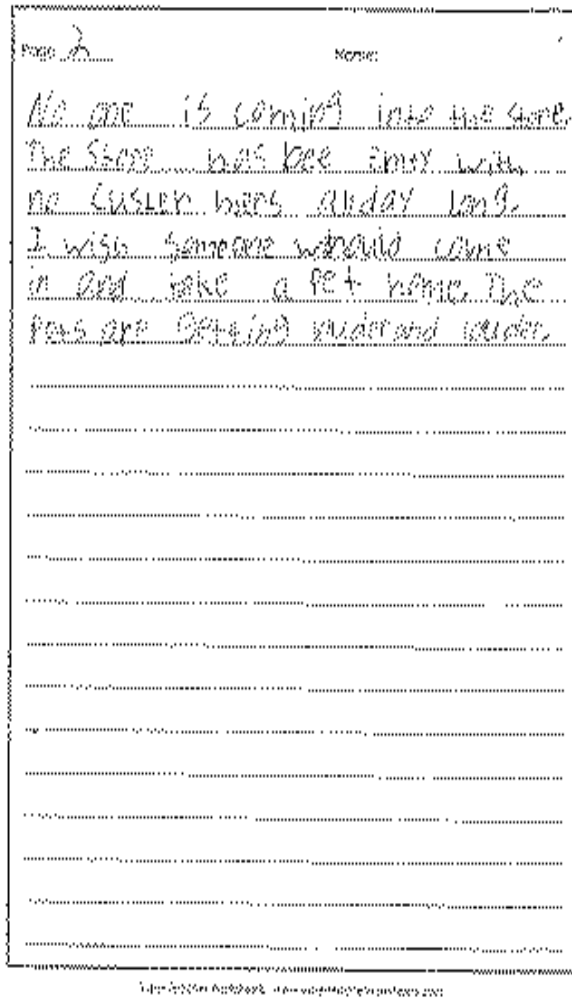 Page 2 Name:
No one is coming into the store.
The Store has bee Emty with
no custem bers allday long.
I wish someone whould come
in and take a pet home. The
Pets are getting ruder and louder.